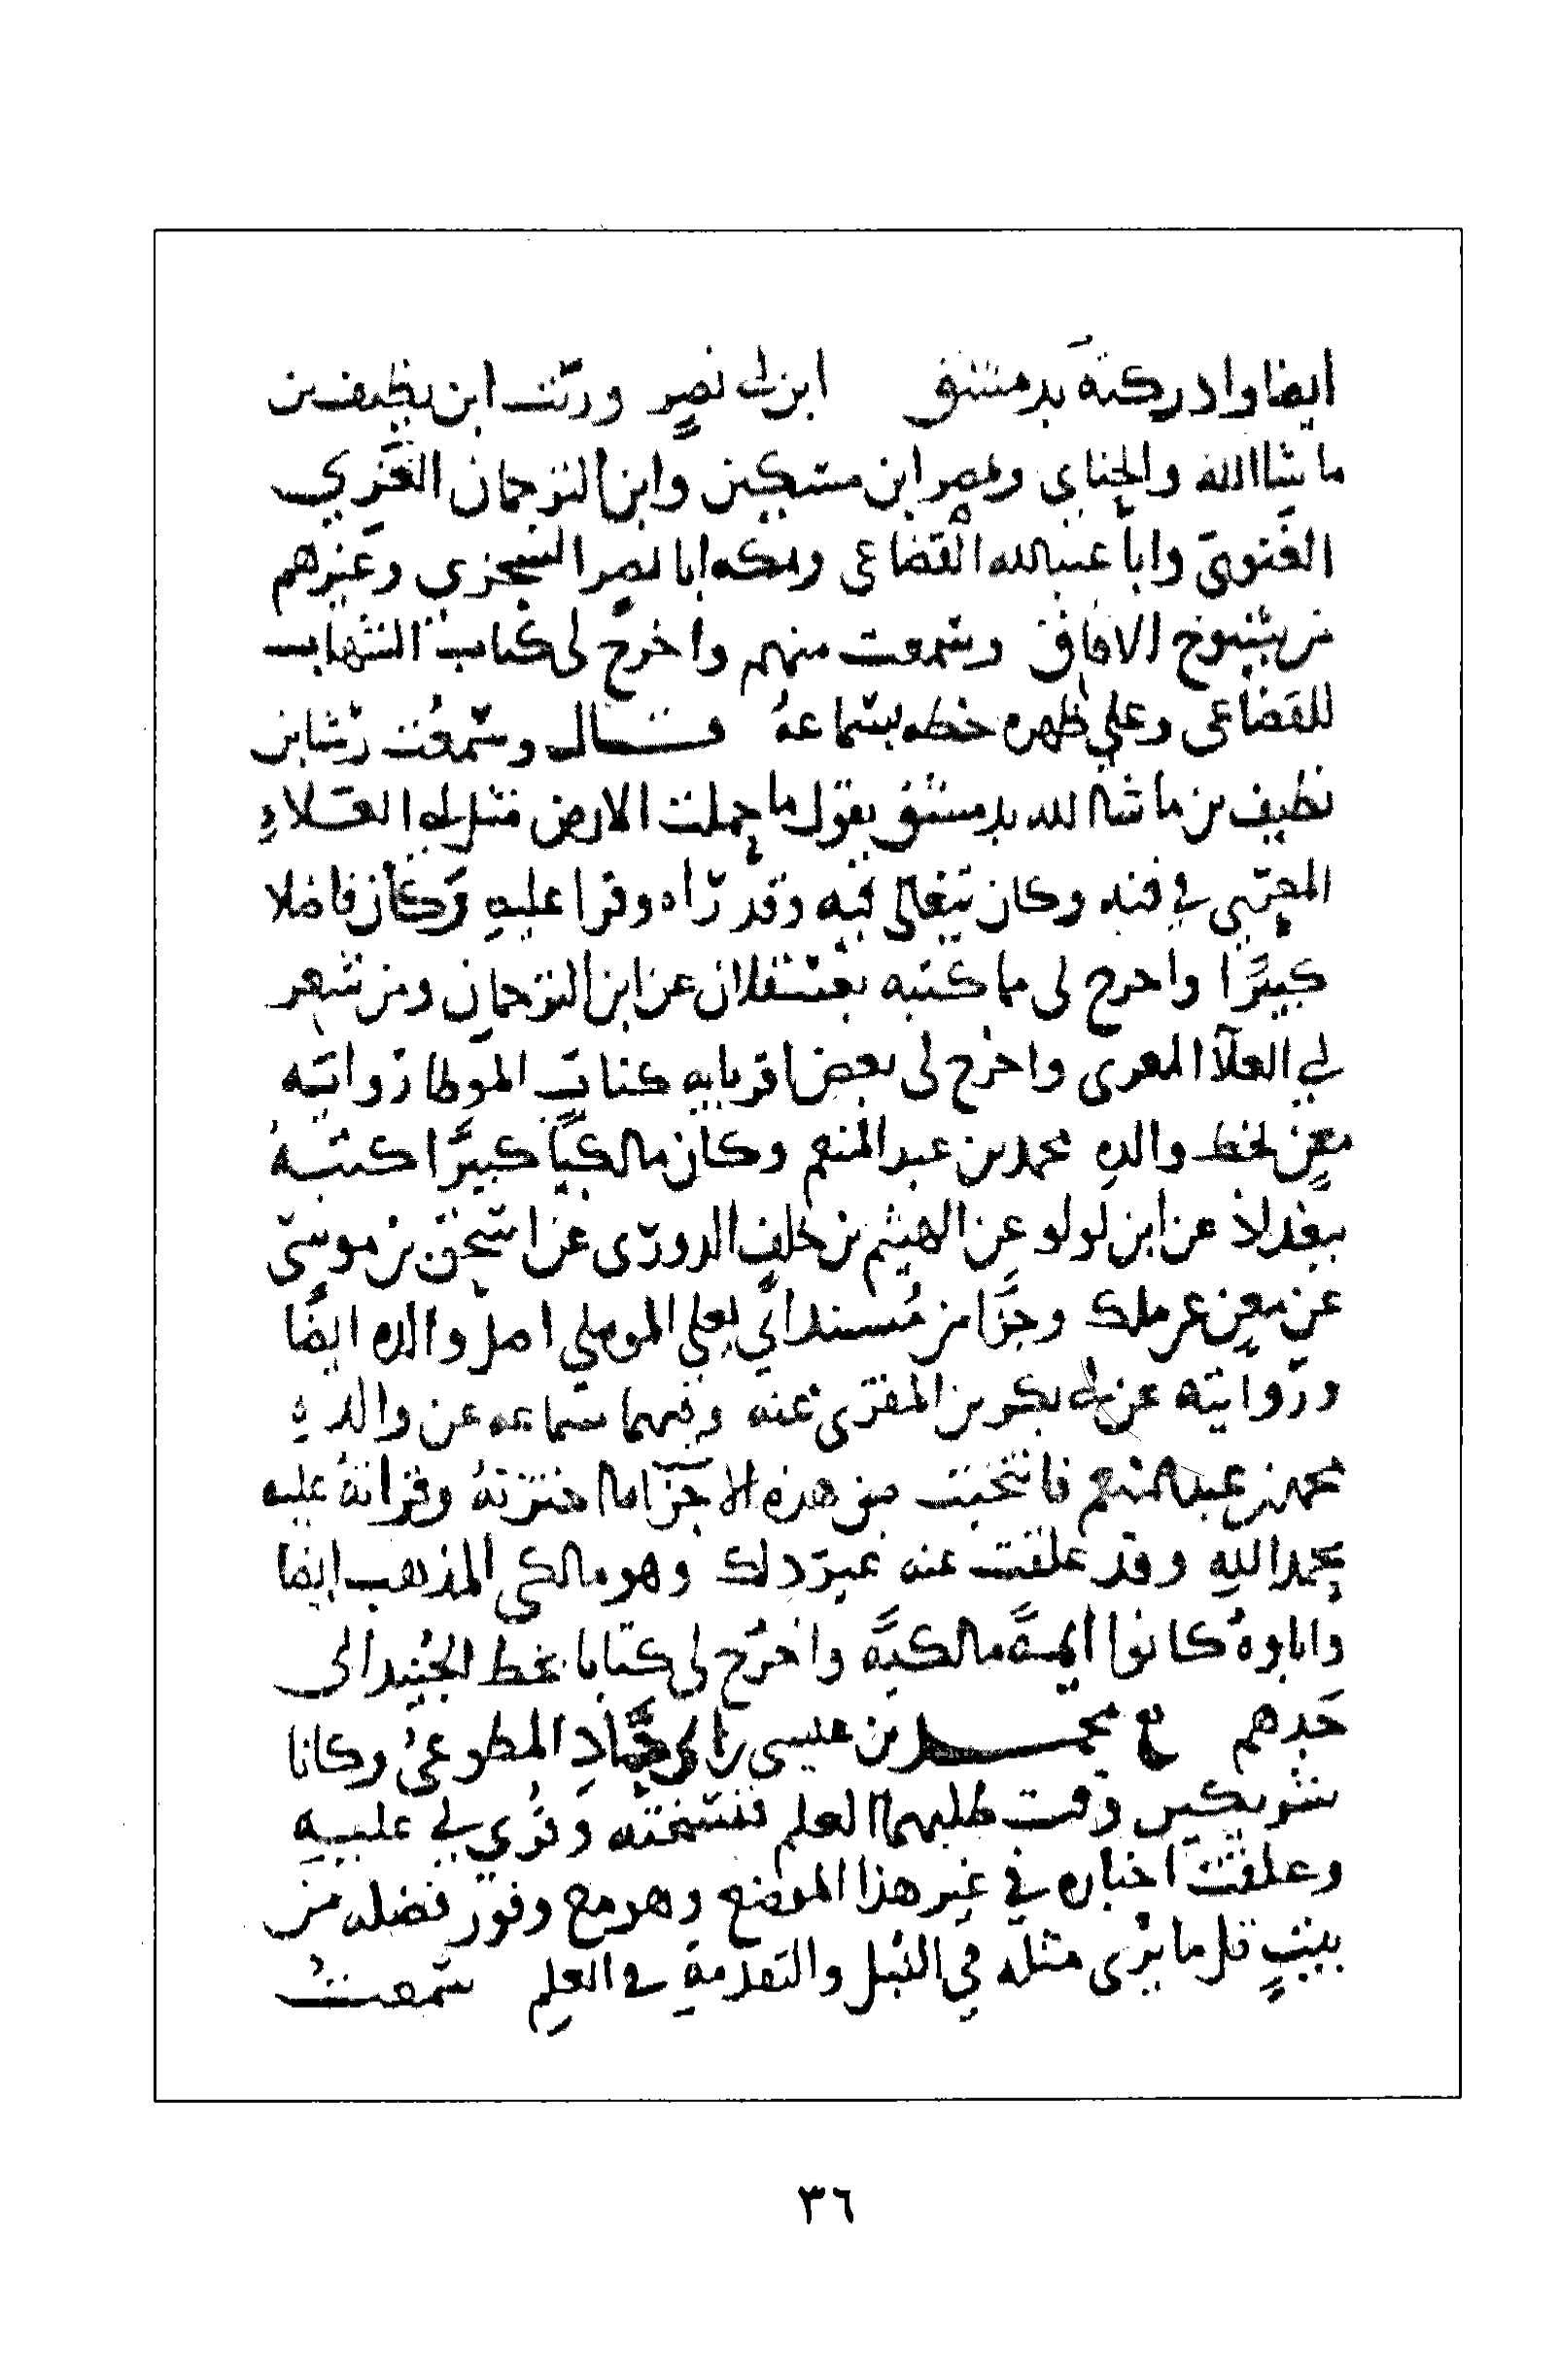 ايضا وادركته بدمشق ابن ابي نصر ورشا ابن نظيف بن
ما شا الله والجنابي وبمصر ابن مسكين وابن الترجمان الغزي
الغنوي وابا عبد الله القضاعي وبمكه ابا نصر السجزي وغيرهم
من شيوخ الافاق وسمعت منهم واخرج لي كتاب الشهاب
للقضاعي وعلي ظهره خطه بسماعه قال وسمعت رشا بن
نظيف بن ما شا الله بدمشق يقول ما حملت الارض مثل ابي العلاء
المعري في فنه وكان يتغالى فيه وقد رآه وقرا عليه وكان فاضلا
كبيرا واخرج لي ما كتبه بعسقلان عن ابن الترجمان ومن شعر
ابي العلآ المعرى واخرج لى بعض اقربايه كتاب الموطا روايته
معن بخط والده محمد بن عبد المنعم وكان مالكيا كبيرا كتبه
ببغداذ عن ابن لولو عن الهيثم بن خلف الدوري عن اسحق بن موسى
عن معن عن ملك وجزا من مسند ابي يعلي الموصلي اصل والده ايضا
وروايته عن ابي بكر بن المقرى عنه وفيهما سماعه عن والده
محمد بن عبد المنعم فانتخبت من هذه الاجزآ ما اخترته وقراته عليه
بحمد الله وقد علقت عنه غير ذلك وهو مالكي المذهب ايضا
واباوه كانوا ايمة مالكية واخرج لي كتابا بخط الجنيد الى
جدهم مع محمد بن عيسى المطوعي وكانا
شريكين وقت طلبهما العلم فنسخته وقري لي عليه
وعلقت اخباره في غير هذا الموضع وهو مع وفور فضله من
بيت قل ما يرى مثله في النبل والتقدمة في العلم سمعت
٣٦